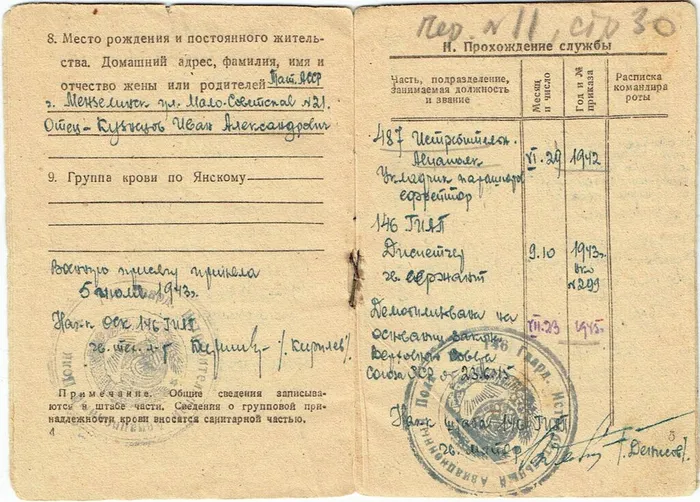 8. Место рождения и постоянного житель-
ства. Домашний адрес, фамилия, имя и
отчество жены или родителей Тат. АССР
г. Мензелинск ул. Мало-Советская №21.
Отец - Кузнецов Иван Александрович
9. Группа крови по Янскому
Военную присягу приняла
5 июля 1943г.
Нач. ОСК 146 ГИАП
гв. тех. л-т /Кирилев/
Примечание. Общие сведения записыва-
ются в штабе части. Сведения о групповой при-
надлежности крови вносятся санитарной частью.
4
пер. №11, стр 30
II. Прохождение службы
Часть, подразделение,
занимаемая должность
и звание
Месяц
и число
Год и №
приказа
Расписка
командира
роты
487 Истребительн.
Авиаполк VI.29 1942
Укладчик парашютов
ефрейтор
146 ГИАП
Диспетчер 9.10 1943г.
гв. сержант №299
Демобилизована на VII.23 1945г.
основании закона
Верховного Совета
Союза ССР от 23.6.45
Нач. штаба 146 ГИАП
гв. майор /Денисов/
5